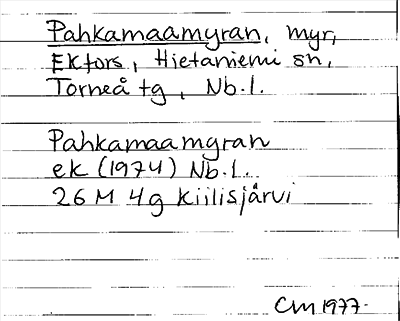 Pahkamaamyran, myr,
Ektors, Hietaniemi sn,
Torneå tg, Nb.l.
Pahkamaamyran
ek (1974) Nb.l.
26 M 4g Kiilisjärvi
CM 1977.